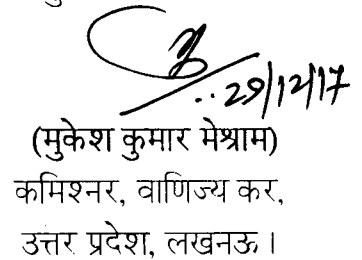 29/12/17
(मुकेश कुमार मेश्राम)
कमिश्नर, वाणिज्य कर,
उत्तर प्रदेश, लखनऊ।